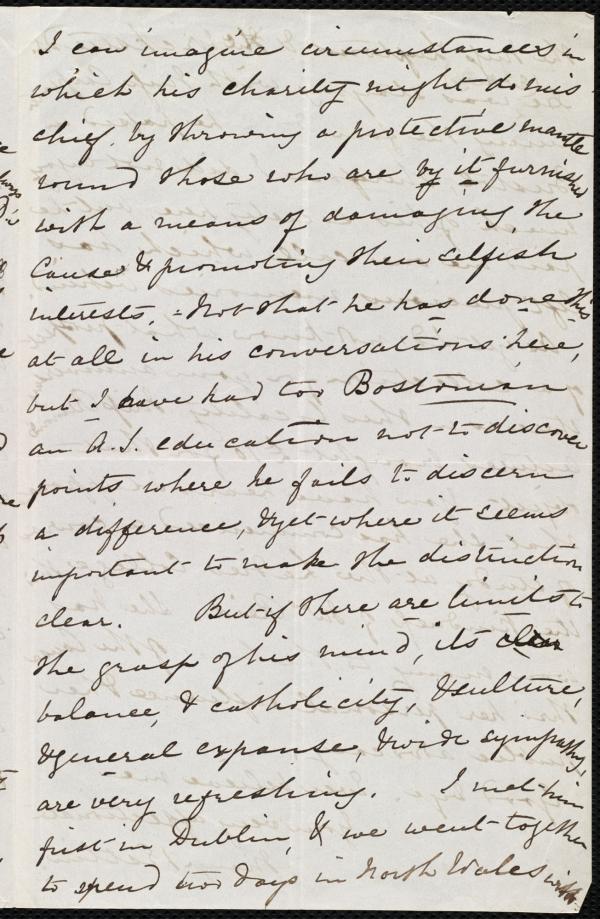 I can imagine circumstances in
which his charity might do mis-
chief, by throwing a protective mantle
round those who are by it furnished
with a means of damaging the
Cause & promoting their selfish
interests, - Not that he has done this
at all in his conversations here,
but I have had too Bostonian
an A.S. education not to discover
points where he fails to discern
a difference, & yet where it seems
important to make the distinction
clear. But if there are limits to
the grasp of his mind, its clear
balance, & catholicity, & culture,
& general expanse, & wide sympathy,
are very refreshing. I met him
first in Dublin, & we went together
to spend two days in North Wales with